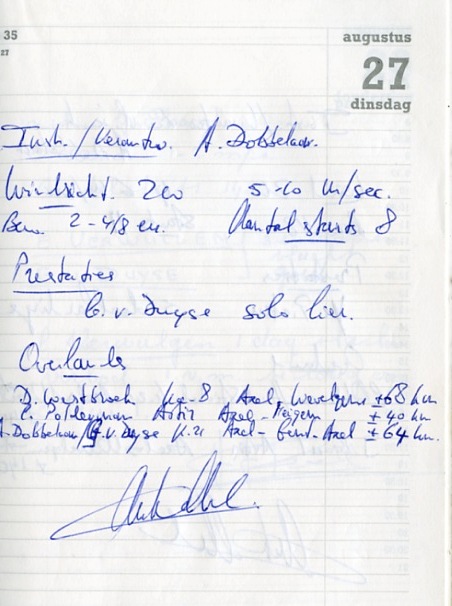 35
27
augustus
27
dinsdag
Instr./Verantw. A. Dobbelaar.
Windricht. 200 5-10 m/sec.
Bew. 2-4/8 cu. Aantal starts 8
Prestaties
v. Duyse solo lier.
Overlands
D. Westbroek Ka-8 Axel, Wevelgem ±68 km
Polderman Axel - ±40 km
A. Dobbelaar/ v. Duyse K.21 Axel - Gent - Axel ±64 km.